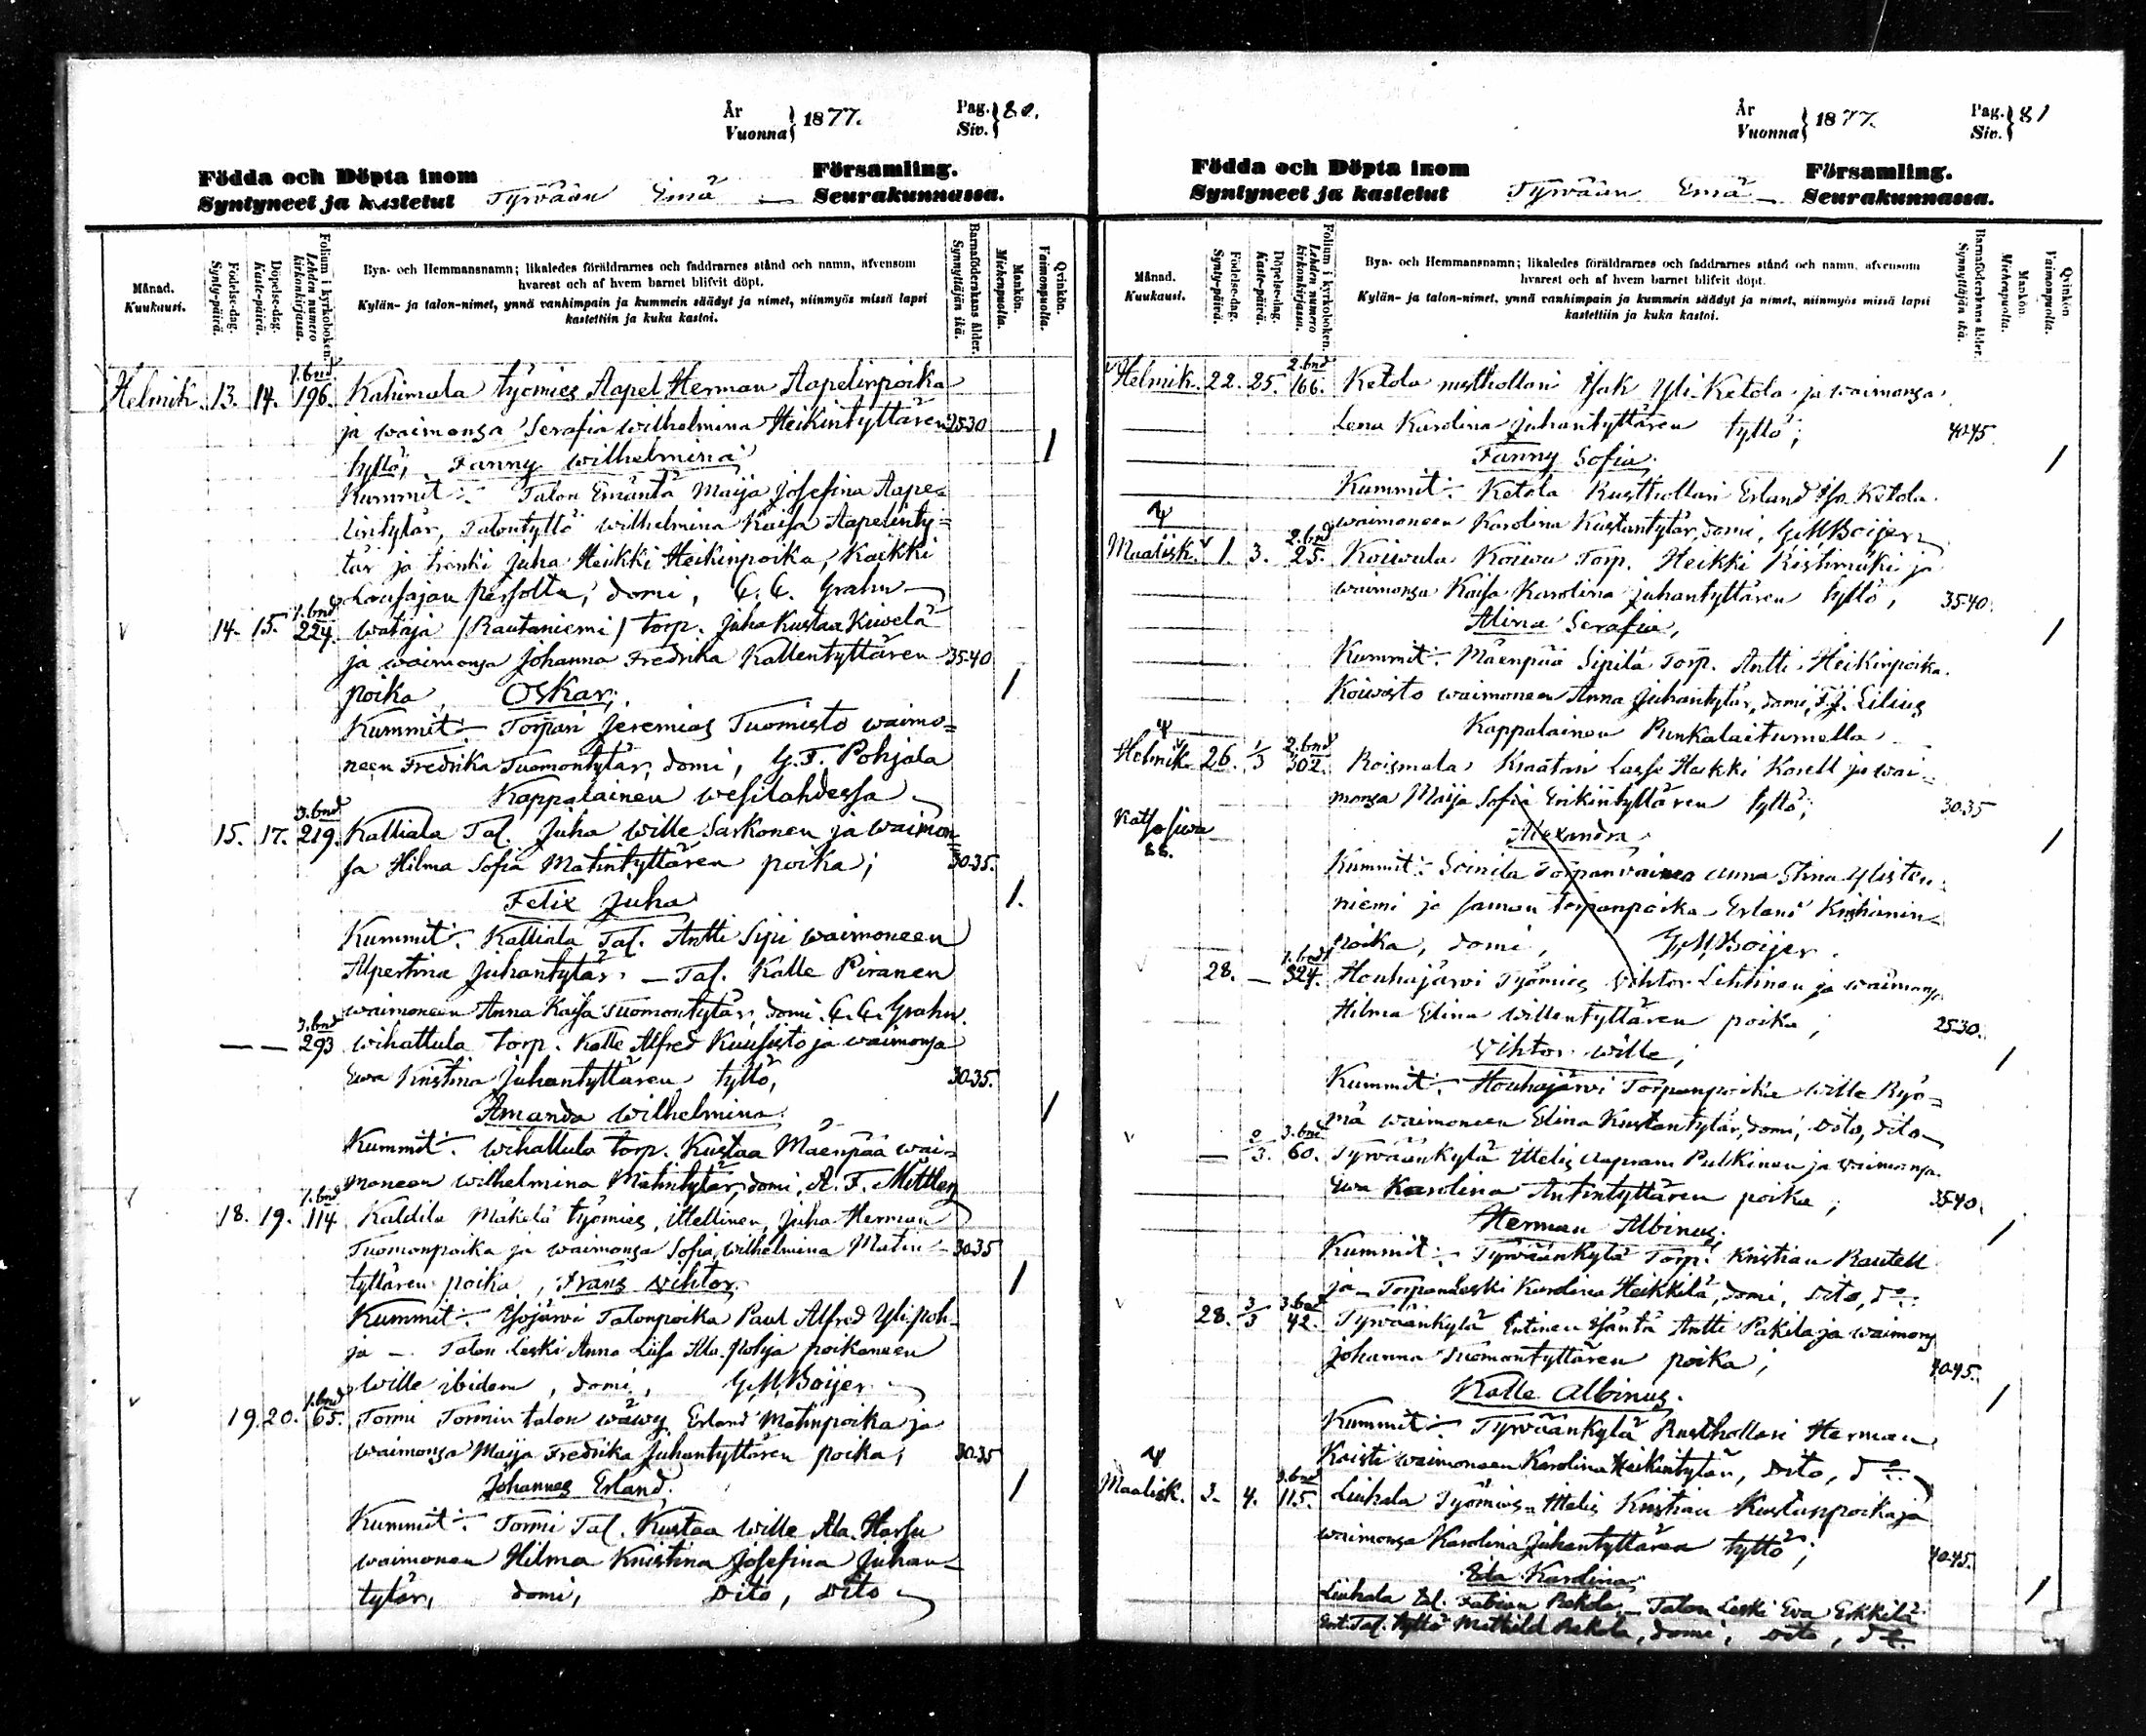 År
Vuonna } 1877.
Pag.
Siv. } 80.
Födda och Döpta inom
Syntyneet ja kastetut
Tyrvään Emä
Församling.
Seurakunnassa.
Månad.
Kuukausi.
Födelse-dag.
Synty-päivä.
Döpelse-dag.
Kaste-päivä.
Folium i kyrkoboken.
Lehden numero
kirkonkirjassa.
Bya- och Hemmansnamn; likaledes föräldrarnes och faddrarnes stånd och namn, äfvensom
hvarest och af hvem barnet blifvit döpt.
Kylän- ja talon-nimet, ynnä vanhimpain ja kummein säädyt ja nimet, niinmyös missä lapsi
kastettiin ja kuka kastoi.
Barnaföderskans ålder.
Synnyttäjän ikä.
Mankön.
Miehenpuolta.
Qvinkön.
Vaimonpuolta.
1.bnd
Helmik. 13. 14. 196. Kahimala työmies Aapel Herman Aapelinpoika
ja waimonsa Serafia wilhelmina Heikintyttären 25-30
tyttö, Fanny wilhelmina 1
Kummit:- Talon Emäntä Maija Josefina Aape-
lintytär, Talontyttö wilhelmina Kaisa Aapelinty-
tär ja Renki Juha Heikki Heikinpoika, Kaikki
persolta, domi, C. C. Grahn
1.bnd
14. 15. 224. wataja /Rautaniemi/ torp. Juha Kustaa Kiwelä
ja waimonsa Johanna Fredrika Kallentyttären 35-40
poika, Oskar; 1
Kummit:- Torpari Jeremias Tuomisto waimo-
neen Fredrika Tuomontytär, domi, G. F. Pohjala
Kappalainen wesilahdessa
3.bnd
15. 17. 219. Kalliala Tal. Juha wille Sarkonen ja waimon-
sa Hilma Sofia Matintyttären poika; 30-35.
Felix Juha 1.
Kummit:- Kalliala Tal. Antti Sipi waimoneen
Alpertina Juhantytär. - Tal. Kalle Piranen
waimoneen Anna Kaisa Tuomontytär, domi. C. C. Grahn.
3.bnd
— — 293 wihattula torp. Kalle Alfred Kuusisto ja waimonsa
Ewa Kristina Juhantyttären tyttö, 30-35.
Amanda wilhelmina 1
Kummit:- wihattula torp. Kustaa Mäenpää wai-
moneen wilhelmina Matintytär, domi, A. F. Mittler
1.bnd
18. 19. 114 Kaldila Mäkelä työmies, ittellinen, Juha Herman
Tuomonpoika ja waimonsa Sofia wilhelmina Matin- 30-35
tyttären poika, Frans wihtor. 1
Kummit:- Talonpoika Paul Alfred Ylipoh-
ja - Talon Leski Anna Liisa Ala-pohja poikaneen
wille ibidem, domi, G.M.Boijer
1.bnd
19. 20. 65. Tormi Tormin talon wäwy Erland Matinpoika ja
waimonsa Maija Fredrika Juhantyttären poika; 30-35
Johannes Erland. 1
Kummit:- Tormi Tal. Kustaa wille Ala-Harsu
waimoneen Hilma Kristina Josefina Juhan-
tytär, domi, Dito, Dito
År
Vuonna } 1877.
Pag.
Siv. } 81
Födda och Döpta inom
Syntyneet ja kastetut
Tyrvään Emä
Församling.
Seurakunnassa.
Månad.
Kuukausi.
Födelse-dag.
Synty-päivä.
Döpelse-dag.
Kaste-päivä.
Folium i kyrkoboken.
Lehden numero
kirkonkirjassa.
Bya- och Hemmansnamn; likaledes föräldrarnes och faddrarnes stånd och namn, äfvensom
hvarest och af hvem barnet blifvit döpt.
Kylän- ja talon-nimet, ynnä vanhimpain ja kummein säädyt ja nimet, niinmyös missä lapsi
kastettiin ja kuka kastoi.
Barnaföderskans ålder.
Synnyttäjän ikä.
Mankön.
Miehenpuolta.
Qvinkön
Vaimonpuolta.
2.bnd
Helmik. 22. 25. 166. Ketola rusthollari Isak Yli-Ketola ja waimonsa
Lena Karolina Juhantyttären tyttö; 40-45.
Fanny Sofia. 1
Kummit:- Ketola Rusthollari Erland Iso-Ketola
waimoneen Karolina Kustantytär, domi, G.M.Boijer
2.bnd
Maalisk. 1. 3. 25. Koiwula Koiwu Torp. Heikki Ristimäki ja
waimonsa Kaisa Karolina Juhantyttären tyttö, 35-40.
Alina Serafia, 1
Kummit:- Mäenpää Sipilä Torp. Antti Heikinpoika
Koiwisto waimoneen Anna Juhantytär, domi, F.J. Lilius
Kappalainen Punkalaitumella
2.bnd
Helmik. 26. 1/3 302. Roismala Kraatari Lasse Heikki Korell ja wai-
monsa Maija Sofia Erikintyttären tyttö; 30-35
Katso siwu
88.
Alexandra 1
Kummit:- Soinila Torpanwaimo Anna Stina Ylisten-
niemi ja saman torpanpoika Erland Kristianin-
poika, domi, G.M.Boijer.
1.bnd
28. — 324. Houhajärwi Työmies Wihtor Lehtinen ja waimonsa
Hilma Elina willentyttären poika; 25-30.
Wihtor wille; 1
Kummit:- Houhajärwi Torpanpoika wille Ryö-
mä waimoneen Elina Kustantytär, domi, Dito, Dito
3.bnd
— 2/3. 60. Tyrväänkylä Ittelis Aapram Pulkkinen ja waimonsa
Ewa Karolina Antintyttären poika; 35-40.
Herman Albinus; 1
Kummit:- Tyrväänkylä Torp. Kristian Rautell
ja Torpanleski Karolina Heikkilä, domi, Dito, do.
3.bnd
28. 3/3 42. Tyrväänkylä Entinen Isäntä Antti Pakila ja waimonsa
Johanna Tuomontyttären poika; 40-45.
Kalle Albinus. 1
Kummit:- Tyrväänkylä Rusthollari Herman
Kaisti waimoneen Karolina Heikintytär, Dito, do.
3.bnd
Maalisk. 3. 4. 115. Liuhala Työmies Ittelis Kristian Kustaanpoika ja
waimonsa Karolina Juhantyttären tyttö; 40-45.
Ida Karolina; 1
Liuhala Tal. Fabian Rekola - Talon Leski Eva Erkkilä
Ent. Tal. tyttö Mathild Rekola, domi, Dito, do.